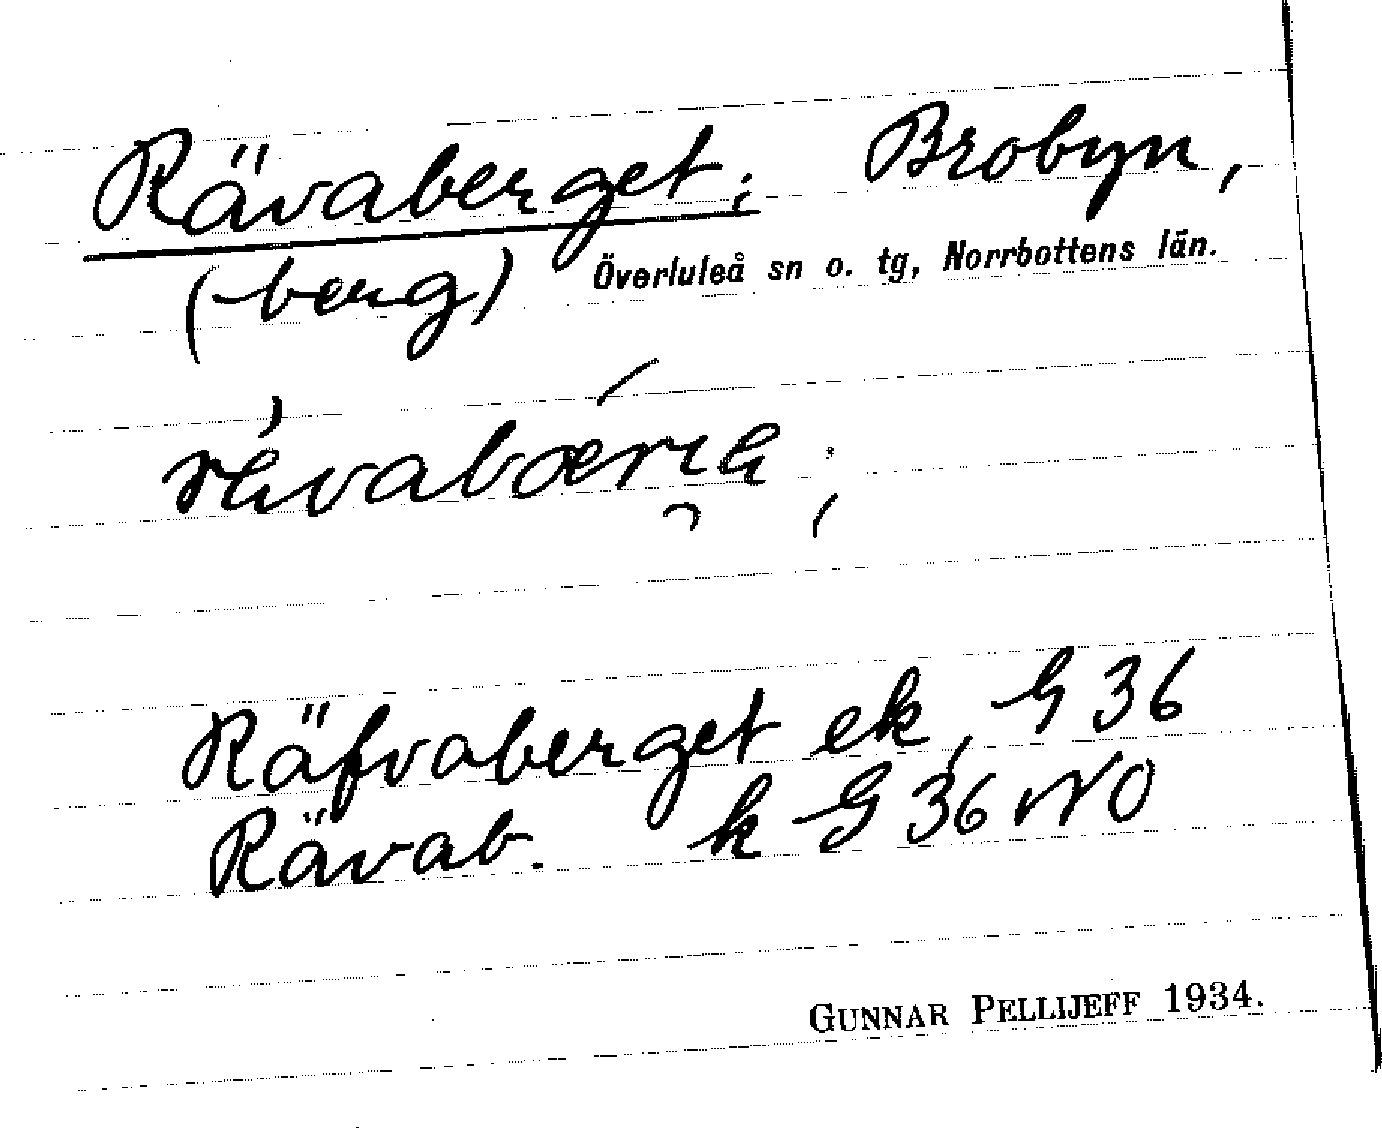 Rävaberget; Brobyn,
(-berg) Överluleå sn o. tg, Norrbottens län.
Räfvaberget ek, G 36
Rävab. k G 36 NO
GUNNAR PELLIJEFF 1934.